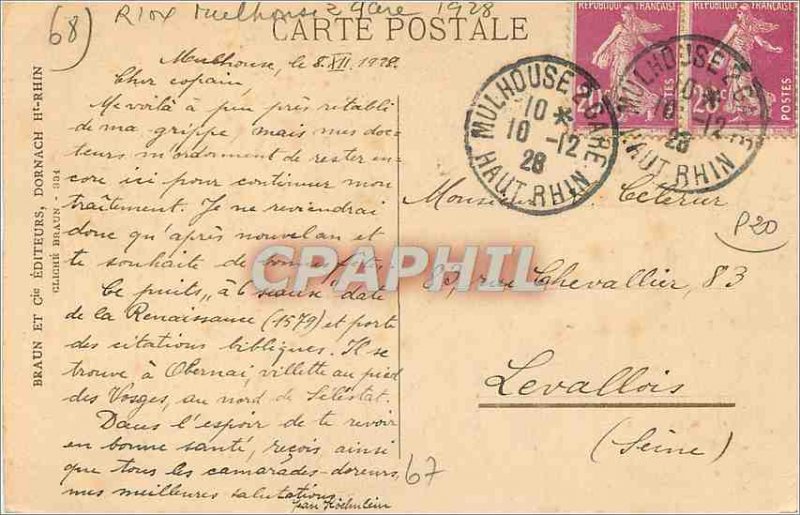 68)
R10x Mulhouse 2 gare 1928
CARTE POSTALE
RÉPUBLIQUE FRANÇAISE
RÉPUBLIQUE FRANÇAISE
POSTES
POSTES
MULHOUSE 2 GARE
10 *
10 -12
28
HAUT RHIN
MULHOUSE 2 GARE
10 *
10 -12
28
HAUT RHIN
Mulhouse, le 8.XII.1928.
Cher copain,
Me voilà à peu près rétabli
de ma grippe, mais mes doc-
teurs m'ordorment de rester en-
core ici pour continuer mon
traitement. Je ne reviendrai
donc qu'après nouvel an et
te souhaite de bonnes fêtes.
Ce puits „à 6 seaux" date
de la Renaissance (1579) et porte
des citations bibliques. Il se
trouve à Obernai, villette au pied
des Vosges, au nord de Sélestat.
Dans l'espoir de te revoir
en bonne santé, reçois ainsi
que tous les camarades-doreurs,
mes meilleures salutations
Jean
67
Monsieur
83, rue Chevallier, 83
Levallois
(Seine)
P20
BRAUN ET Cie ÉDITEURS, DORNACH Ht-RHIN
CLICHÉ BRAUN - 334
CPAPHIL